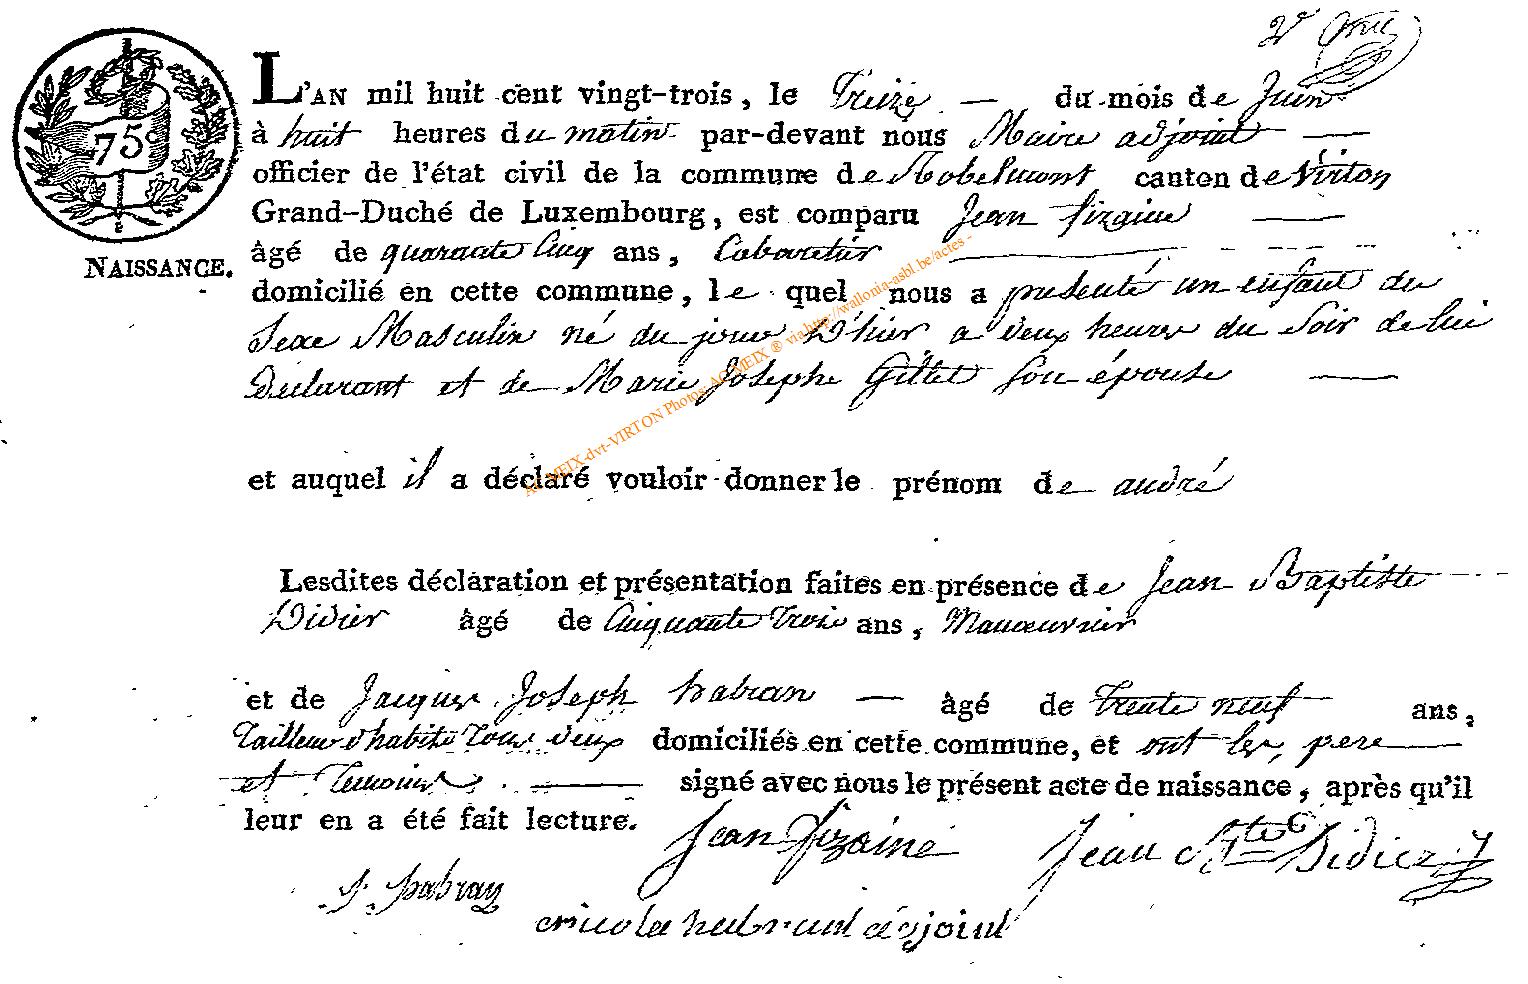 L'AN mil huit cent vingt-trois, le Treize — du mois de Juin
à huit heures du matin par-devant nous Maire adjoint —
officier de l'état civil de la commune de Robelmont canton de Virton
Grand-Duché de Luxembourg, est comparu Jean fizaine —
âgé de quarante Cinq ans, Cabaretier —
domicilié en cette commune, le quel nous a présenté un enfant du
Sexe Masculin né du jour D'hier a deux heures du Soir de lui
Déclarant et de Marie Josephe Gillet son épouse —
et auquel il a déclaré vouloir donner le prénom de andré
Lesdites déclaration et présentation faites en présence de Jean Baptiste
Didier âgé de Cinquante Trois ans, Manoeuvrier
et de Jacques Joseph habran — âgé de trente neuf ans,
Tailleur d'habits Tous deux domiciliés en cette commune, et ont les pere —
et Temoins — signé avec nous le présent acte de naissance, après qu'il
leur en a été fait lecture.
Jean fizaine Jean Bte Didier
J. J. habran
adjoint
75c
NAISSANCE.
AC MEIX-dvt-VIRTON Photos: AC MEIX ® via http://wallonia-asbl.be/actes -